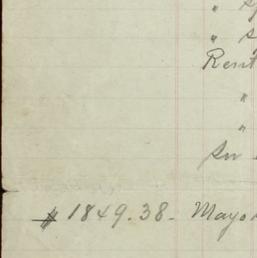 "
"
Rent
"
"
$ 1849.38. Mayo